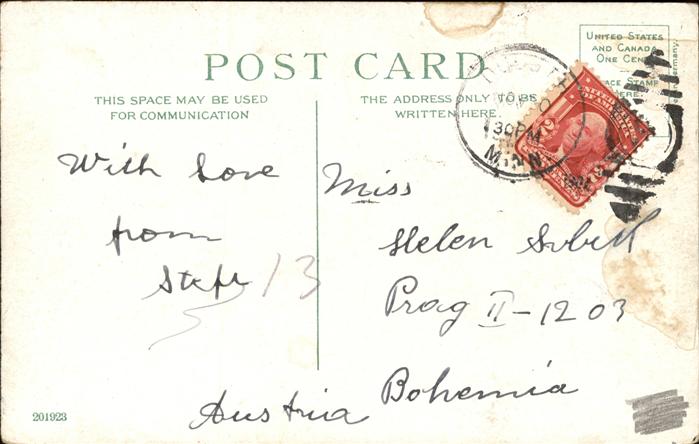 POST CARD
THIS SPACE MAY BE USED
FOR COMMUNICATION
THE ADDRESS ONLY TO BE
WRITTEN HERE.
UNITED STATES
AND CANADA
ONE CEN
STAMP
HERE.
NOV
30PM
MINN
With Love
from
13
Miss
Helen
Prag II-1203
Bohemia
Austria
201923